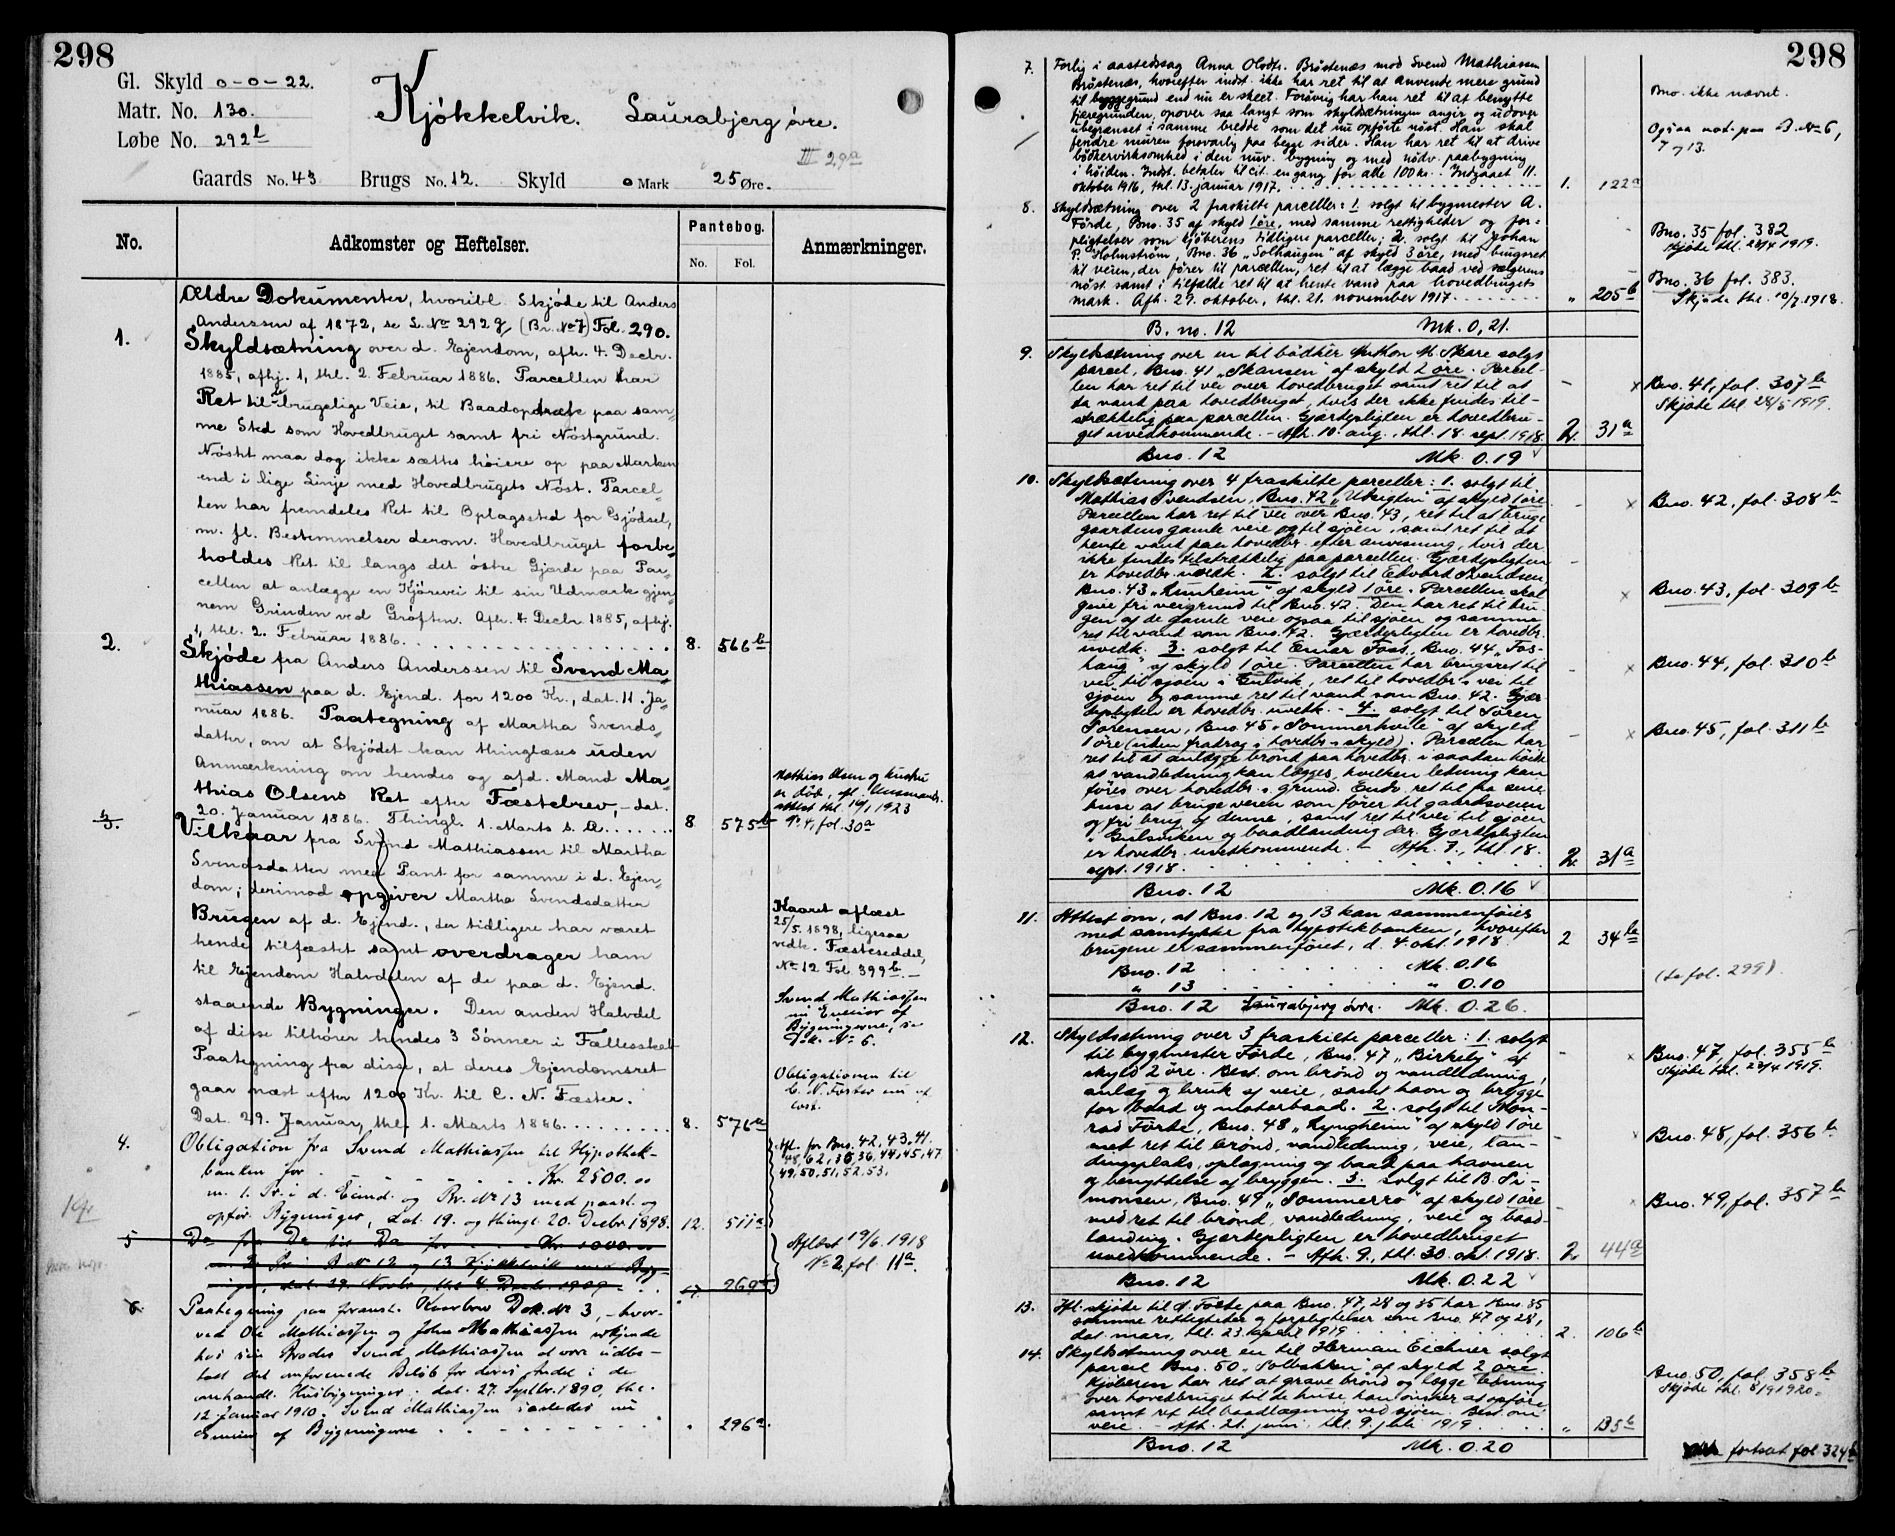 298
Gl. Skyld 0-0-22.
Matr. No. 130.
Løbe No. 292 l
Kjøkkelvik. Laurabjerg øvre.
III 29a
Gaards No. 43 Brugs No. 12. Skyld 0 Mark 25 Øre.
No. Adkomster og Heftelser. Pantebog. No. Fol. Anmærkninger.
Ældre Dokumenter, hvoribl. Skjøde til Anders
Anderssen af 1872, se L. No 292 g (Br. No 7) Fol. 290.
1. Skyldsætning over d. Ejendom, afh. 4. Decbr.
1885, afhj. 1, thl. 2. Februar 1886. Parcellen har
Ret til brugelige Veie, til Baadopdræt paa sam-
me Sted som Hovedbruget samt fri Nöstgrund.
Nöstet maa dog ikke sættes höiere op paa Marken
end i lige Linje med Hovedbrugets Nöst. Parcel-
len har fremdeles Ret til Oplagssted for Gjödsel,
m. fl. Bestemmelser derom. Hovedbruget forbe-
holdes Ret til langs det östre Gjærde paa Par-
cellen at anlægge en Kjörevei til sin Udmark gjen-
nem Grinden ved Gröften. Afh. 4. Decbr. 1885, afhj.
1, thl. 2. Februar 1886. 8. 566 b
2. Skjöde fra Anders Anderssen til Svend Ma-
thiassen paa d. Ejend. for 1200 Kr., dat. 11. Ja-
nuar 1886. Paategning af Martha Svends-
datter, om at Skjödet kan thinglæses uden
Anmærkning om hendes og afd. Mand Ma-
thias Olsens Ret efter Fæstebrev, - dat.
20. Januar 1886. Thingl. 1. Marts s. A. 8 575 b
Mathias Olsen og hustru
er död, ifl.
attest thl. 16/1 1923
No 4, fol. 30 a
3. Vilkaar fra Svend Mathiassen til Martha
Svendsdatter med Pant for samme i d. Ejen-
dom; derimod opgiver Martha Svendsdatter
Brugen af d. Ejend., der tidligere har været
hende tilfæstet samt overdrager ham
til Ejendom Halvdelen af de paa d. Ejend.
staaende Bygninger. Den anden Halvdel
af disse tilhører hendes 3 Sönner i Fællesskab
Paategning fra disse, at deres Ejendomsret
gaar næst efter 1200 Kr. til C. N. Fæster.
Dat. 29. Januar, thl. 1. Marts 1886. 8. 576 a
Kaaret aflæst
25/5 1898, ligesaa
vedk. Fæsteseddel,
No 12 Fol 399 b. -
Svend Mathiassen
nu Eneeier af
Bygningerne, se
Dok. No 6.
Obligationen til
C. N. Fæster nu af
læst.
4. Obligation fra Svend Mathiassen til Hypothek-
banken for Kr. 2500.00
m. 1. Pr. i d. Eiend. og Br. No 13 med paast. og
opför. Bygninger, dat. 19. og thingl. 20. Decbr. 1898. 12. 511 a
Afl. for Bno. 42, 43, 41.
48, 62, 35, 36, 44, 45, 47
49, 50, 51, 52, 53.
5 Do fra Do til Do for Kr. 1000.00
m. 2. Pr. i B. No 12 og 13 Kjøkkelvik med Byg-
inger, dat. 29. Novbr., thl. 4. Decbr. 1909 17. 269 a
Aflæst 19/6. 1918
No 2, fol. 11 a.
6. Paategning paa foranst. Kaarbrev Dok. No 3, - hvor-
ved Ole Mathiassen og John Mathiassen erkjende
hos sin Broder Svend Mathiassen at være udbe-
talt det omforenede Belöb for deres Andel i de
omhandl. Husbygninger. dat. 27. Septbr. 1890, thl.
12. Januar 1910. Svend Mathiassen saaledes nu
Eneeier af Bygningerne . 296 a
298
7. Forlig i aastedssag Anna Olsdtr. Bröstenæs mod Svend Mathiassen
Bröstenæs, hvorefter indst. ikke har ret til at anvende mere grund
til byggegrund end nu er skeet. Forövrig har han ret til at benytte
fjæregrunden, opover saa langt som skyldsætningen angir og udover
ubegrænset i samme bredde som det nu opförte nöst. Han skal
fendre muren forsvarlig paa begge sider. Han har ret til at drive
bödkervirksomhed i den nuv. bygning og med nödv. paabygning
i höiden. Indst. betaler til cit. en gang for alle 100 kr. Indgaaet 11.
oktober 1916, thl. 13. januar 1917. 1. 122 a
Bno. ikke nævnt.
Ogsaa not. paa B. No 6,
7 og 13.
8. Skyldsætning over 2 fraskilte parceller: 1. solgt til bygmester A.
Förde, Bno. 35 af skyld 1 öre, med samme rettigheder og for-
pligtelser som kjöberens tidligere parceller; 2. solgt til Johan
P. Holmström, Bno. 36 "Solhaugen" af skyld 3 öre, med brugsret
til veien, der fører til parcellen, ret til at lægge baad ved sælgerens
nöst samt i tilfælde ret til at hente vand paa hovedbrugets
mark. Afh. 29. oktober, thl. 21. november 1917. " 205 b
Bno. 35 fol. 382
Skjöte thl. 23/4 1919.
Bno. 36 fol. 383.
Skjöde thl. 10/7 1918.
B. no. 12 Mk. 0,21.
9. Skyldsætning over en til bödker Anthon M. Skare solgt
parcel, Bno. 41 "Skansen" af skyld 2 öre. Parcel-
len har ret til vei over hovedbruget samt ret til at
ta vand paa hovedbruget, hvis der ikke findes til-
strækkelig paa parcellen. Gjærdepligten er hovedbru-
get uvedkommende. - Afh. 10. aug., thl. 18. sept. 1918. 2. 31 a
x Bno. 41, fol. 307 b
Skjöte thl. 28/5 1919.
Bno. 12 Mk. 0.19
10. Skyldsætning over 4 fraskilte parceller: 1. solgt til
Mathias Svendsen, Bno. 42 "Utsigten" af skyld 1 öre
Parcellen har ret til vei over Bno. 43, ret til at bruge
gaardens gamle veie og til sjöen, samt ret til at
hente vand paa hovedbr. efter anvisning, hvis der
ikke findes tilstrækkelig paa parcellen. Gjærdepligten
er hovedbr. uvedk. 2. solgt til Edvard Svendsen,
Bno. 43 af skyld 1 öre. Parcellen skal
give fri veigrund til Bno. 42. Den har ret til bru-
gen af de gamle veie ogsaa til sjöen og samme
ret til vand som Bno. 42. Gjærdepligten er hovedbr.
uvedk. 3. solgt til Einar Foss, Bno. 44 "Fos-
haug" af skyld 1 öre. Parcellen har brugsret til
vei til sjöen i Gulvik, ret til hovedbr.s vei til
sjöen og samme ret til vand som Bno. 42. Gjær-
depligten er hovedbr. uvedk. - 4. solgt til Sören
Sörensen, Bno. 45 "Sommerhvile" af skyld
1 öre (uden fradrag i hovedbr.s skyld). Parcellen har
ret til at anlægge brönd paa hovedbr. i saadan höide
at vandledning kan lægges, hvilken ledning kan
föres over hovedbr.s grund. Endv. ret til fra sine
huse at bruge veien som förer til gaardsveien
og fri brug af denne, samt ret til vei til sjöen
i Gulsviken og baadlanding der. Gjærdepligten
er hovedbr. uvedkommende. - Afh. 7., thl. 18.
sept. 1918. 2. 31 a
x Bno. 42, fol. 308 b
x Bno. 43, fol. 309 b
x Bno. 44, fol. 310 b
x Bno. 45, fol. 311 b
Bno. 12 Mk. 0.16
11. Attest om, at Bno. 12 og 13 kan sammenföies
med samtykke fra hypotekbanken, hvorefter
brugene er sammenföiet, d. 4 okt. 1918. 2 34 b
Bno. 12 Mk. 0.16
" 13 " 0.10
(Se fol. 299).
Bno. 12 Laurabjerg övre. Mk. 0.26.
12. Skyldsætning over 3 fraskilte parceller: 1. solgt
til bygmester Förde, Bno. 47 "Birkely" af
skyld 2 öre. Best. om brönd og vandledning,
anlæg og bruk af veie, samt havn og brygge
for baad og motorbaad. 2. solgt til Kon-
rad Förde, Bno. 48 "Lyngheim" af skyld 1 öre
med ret til brönd, vandledning, veie, lan-
dingsplads, oplægning af baad paa havnen
og benyttelse af bryggen. 3. solgt til B. Si-
monsen, Bno. 49 "Sommerro" af skyld 1 öre
med ret til brönd, vandledning, veie og baad-
landing. Gjærdepligten er hovedbruget
uvedkommende. - Afh. 9., thl. 30. okt. 1918. 2. 44 a
x Bno. 47, fol. 355 b
Skjöte thl. 23/4 1919.
Bno. 48, fol. 356 b
Bno. 49, fol. 357 b
Bno. 12 Mk. 0.22
13. Ifl. skjöte til A. Förde paa Bno. 47, 28 og 35 har Bno. 35
samme rettigheder og forpligtelser som Bno. 47 og 28,
dat. mars, thl. 23. april 1919 2. 106 b
14. Skyldsætning over en til Herman Eichner solgt
parcel Bno. 50, "Solbakken" af skyld 2 öre.
Kjöberen har ret at grave brönd og lægge ledning
over hovedbruget til de huse han önsker at opföre
samt ret til baadlægning ved sjöen. Best. om
veie. - Afh. 21. juni, thl. 9. juli 1919 " 135 b
Bno. 50, fol. 358 b
Bno. 12 Mk. 0.20
fortsat fol. 324 b